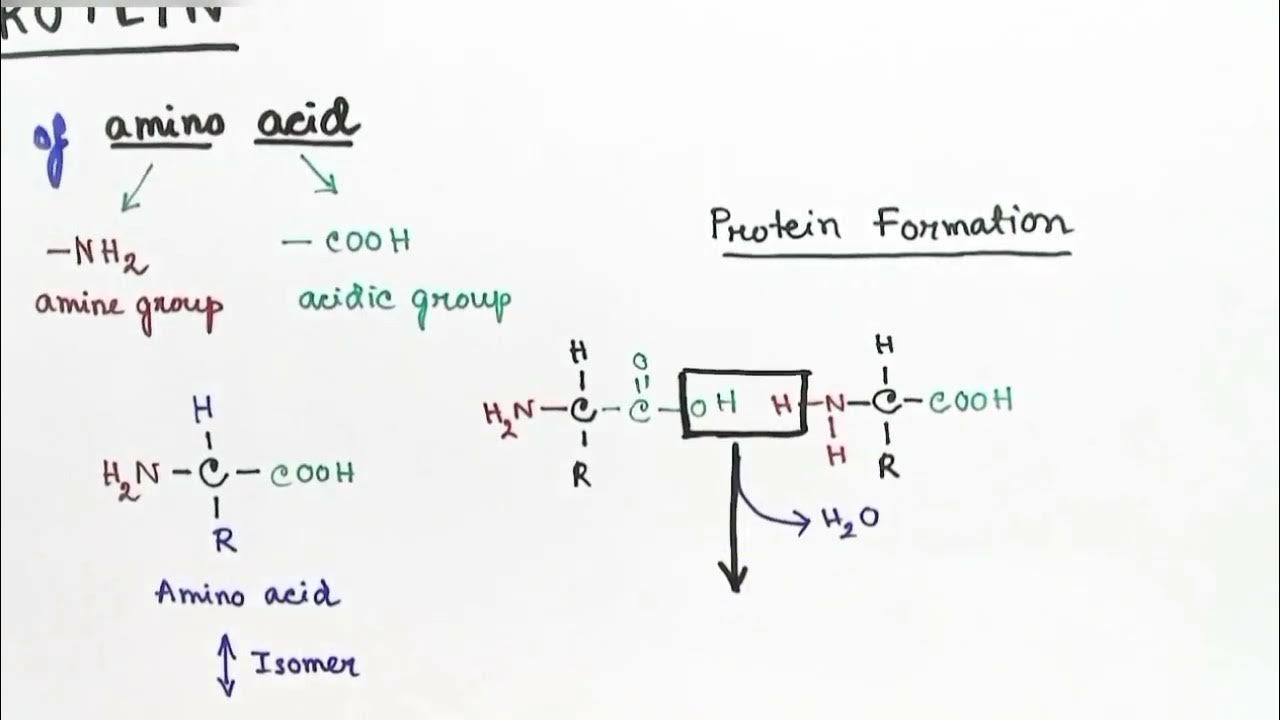 PROTEIN
of amino acid
-NH2
- COOH
amine group
acidic group
H
H2N - C - COOH
R
Amino acid
Isomer
Protein Formation
H O H
H2N - C - C - OH H - N - C - COOH
R H R
H2O